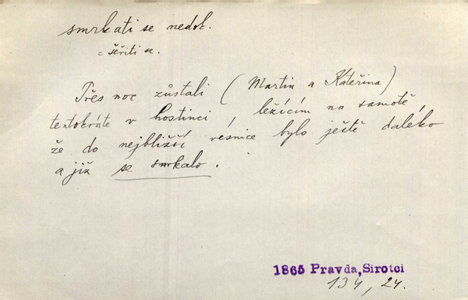 smrkati se nedok.
= šeřiti se.
Přes noc zůstali (Martin a Kateřina)
tentokráte v hostinci ležícím na samotě,
že do nejbližší vesnice bylo ještě daleko
a již se smrkalo.
1865 Pravda, Sirotci
134, 24.